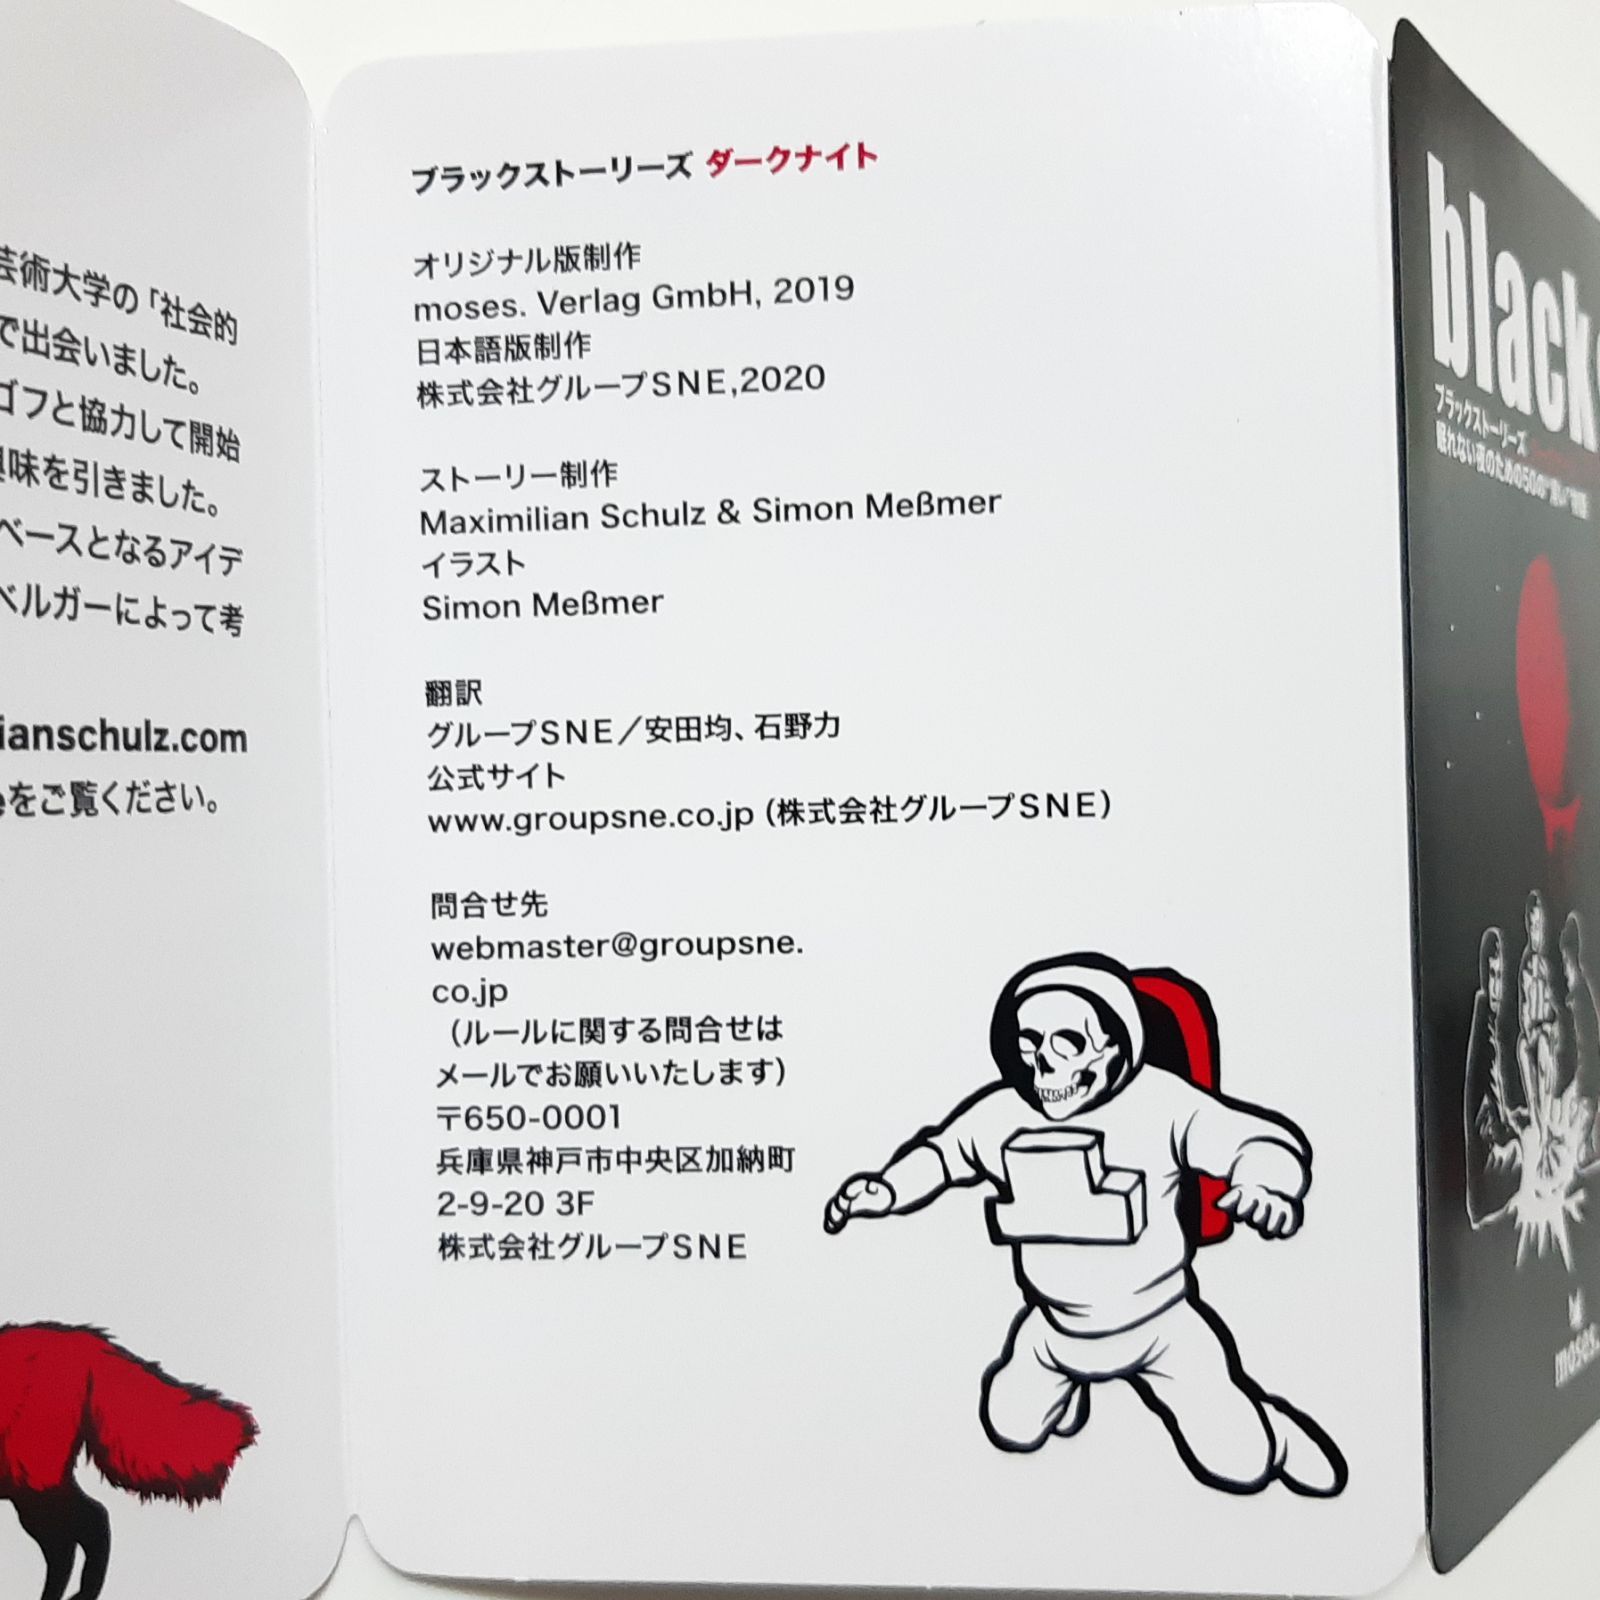 芸術大学の「社会的
で出会いました。
ゴフと協力して開始
味を引きました。
ベースとなるアイデ
ベルガーによって考
ianschulz.com
をご覧ください。
ブラックストーリーズ ダークナイト
オリジナル版制作
moses. Verlag GmbH, 2019
日本語版制作
株式会社グループSNE,2020
ストーリー制作
Maximilian Schulz & Simon Meßmer
イラスト
Simon Meßmer
翻訳
グループSNE／安田均、石野力
公式サイト
www.groupsne.co.jp (株式会社グループSNE)
問合せ先
webmaster@groupsne.
co.jp
（ルールに関する問合せは
メールでお願いいたします）
〒650-0001
兵庫県神戸市中央区加納町
2-9-20 3F
株式会社グループSNE
black
ブラックストーリーズ
眠れない夜のための50の"黒い"
moses.